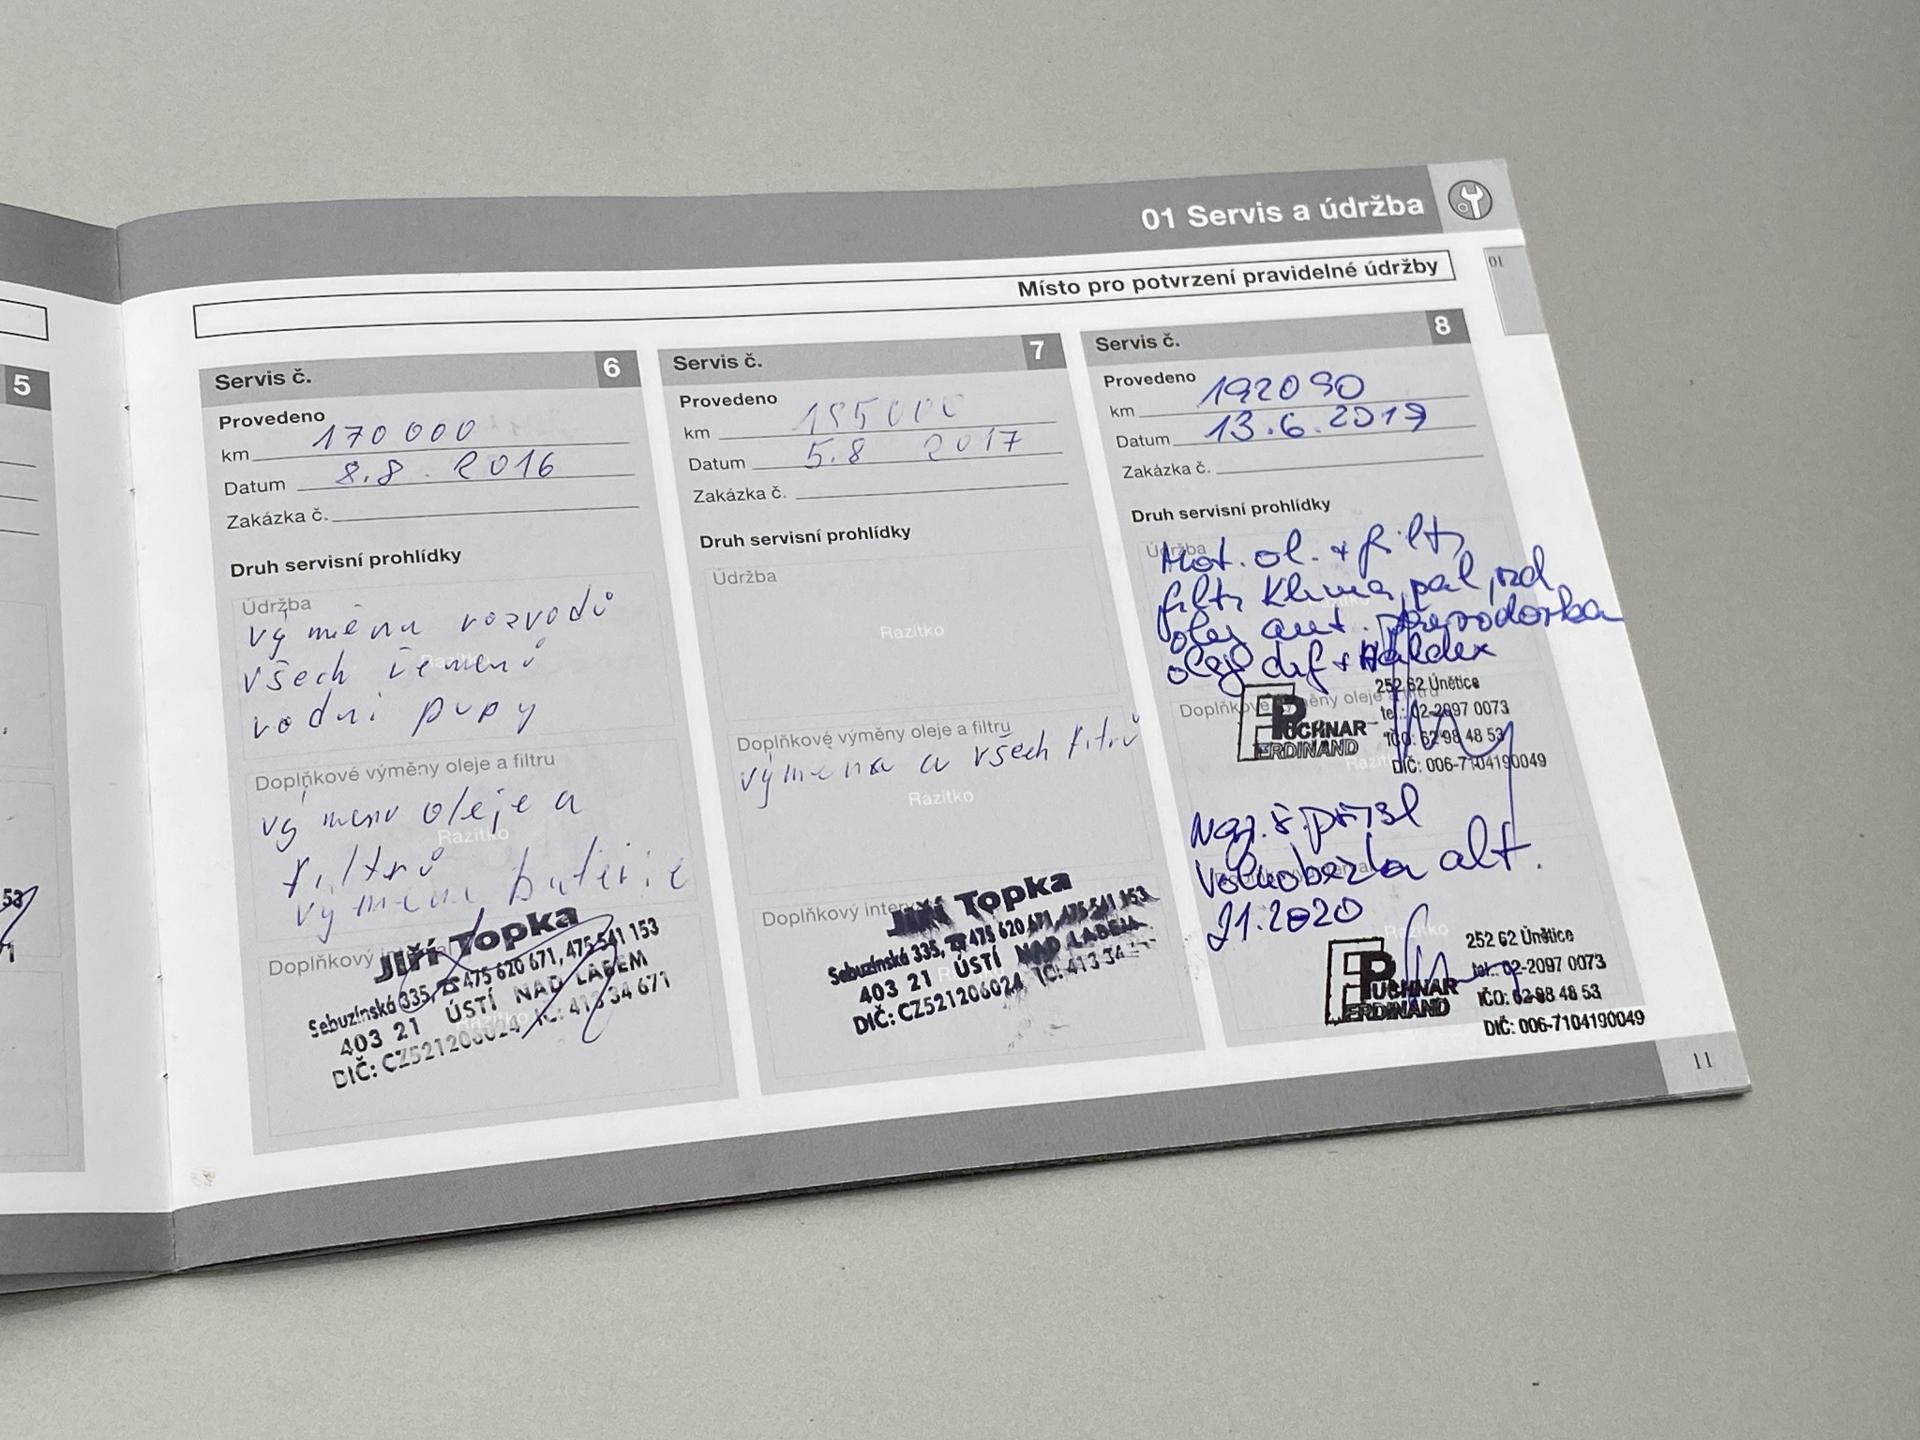 01 Servis a údržba
01
Místo pro potvrzení pravidelné údržby
5
Servis č. 6
Provedeno
km 170 000
Datum 8.8. 2016
Zakázka č.
Druh servisní prohlídky
Údržba
výměna rozvodů
všech řemenů
vodní pupy
Razítko
Doplňkové výměny oleje a filtru
výmenu oleje a
Razítko
filtrů
výmena baterie
Doplňkový interval
Jiří Topka
Sebuzínská 335, ☎ 475 620 671, 475 541 153
403 21 ÚSTÍ NAD LABEM
DIČ: CZ521206024 IČ: 413 34 671
Razítko
Servis č. 7
Provedeno
km 185000
Datum 5.8 2017
Zakázka č.
Druh servisní prohlídky
Údržba
Razítko
Doplňkové výměny oleje a filtru
výmena a všech filtrů
Razítko
Doplňkový interval
Jiří Topka
Sebuzínská 335, ☎ 475 620 671, 475 541 153
403 21 ÚSTÍ NAD LABEM
DIČ: CZ521206024 IČ: 413 34
Servis č. 8
Provedeno
km 192090
Datum 13.6.2019
Zakázka č.
Druh servisní prohlídky
Údržba
Mot. ol. + filtr,
filtr Klima, pal, vzd
olej aut. převodovka
olej dif + Haldex
Doplňkové výměny oleje a filtru
PUCHNAR FERDINAND
252 62 Únětice
tel.: 02-2097 0073
IČO: 62 98 48 53
DIČ: 006-7104190049
Razítko
volnoběžka alt.
21.2020
Razítko
PUCHNAR FERDINAND
252 62 Únětice
tel.: 02-2097 0073
IČO: 62-98 48 53
DIČ: 006-7104190049
11